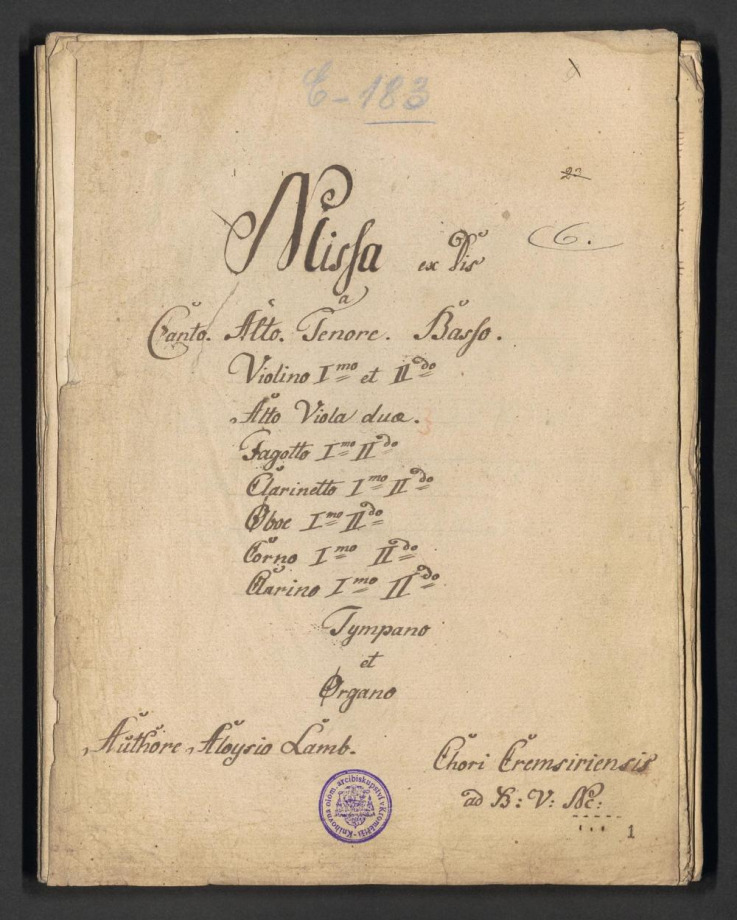 E-183
23
Missa ex Dis
C6.
a
Canto. Alto. Tenore. Basso.
Violino Imo et IIdo
Alto Viola duæ.
3
Fagotto Imo IIdo
Clarinetto Imo IIdo
Oboe Imo IIdo
Corno Imo IIdo
Clarino Imo IIdo
Tympano
et
Organo
Authore Aloysio Lamb.
Chori Cremsiriensis
ad B: V: M:
Knihovna olom. arcibiskupství v Kroměříži
1